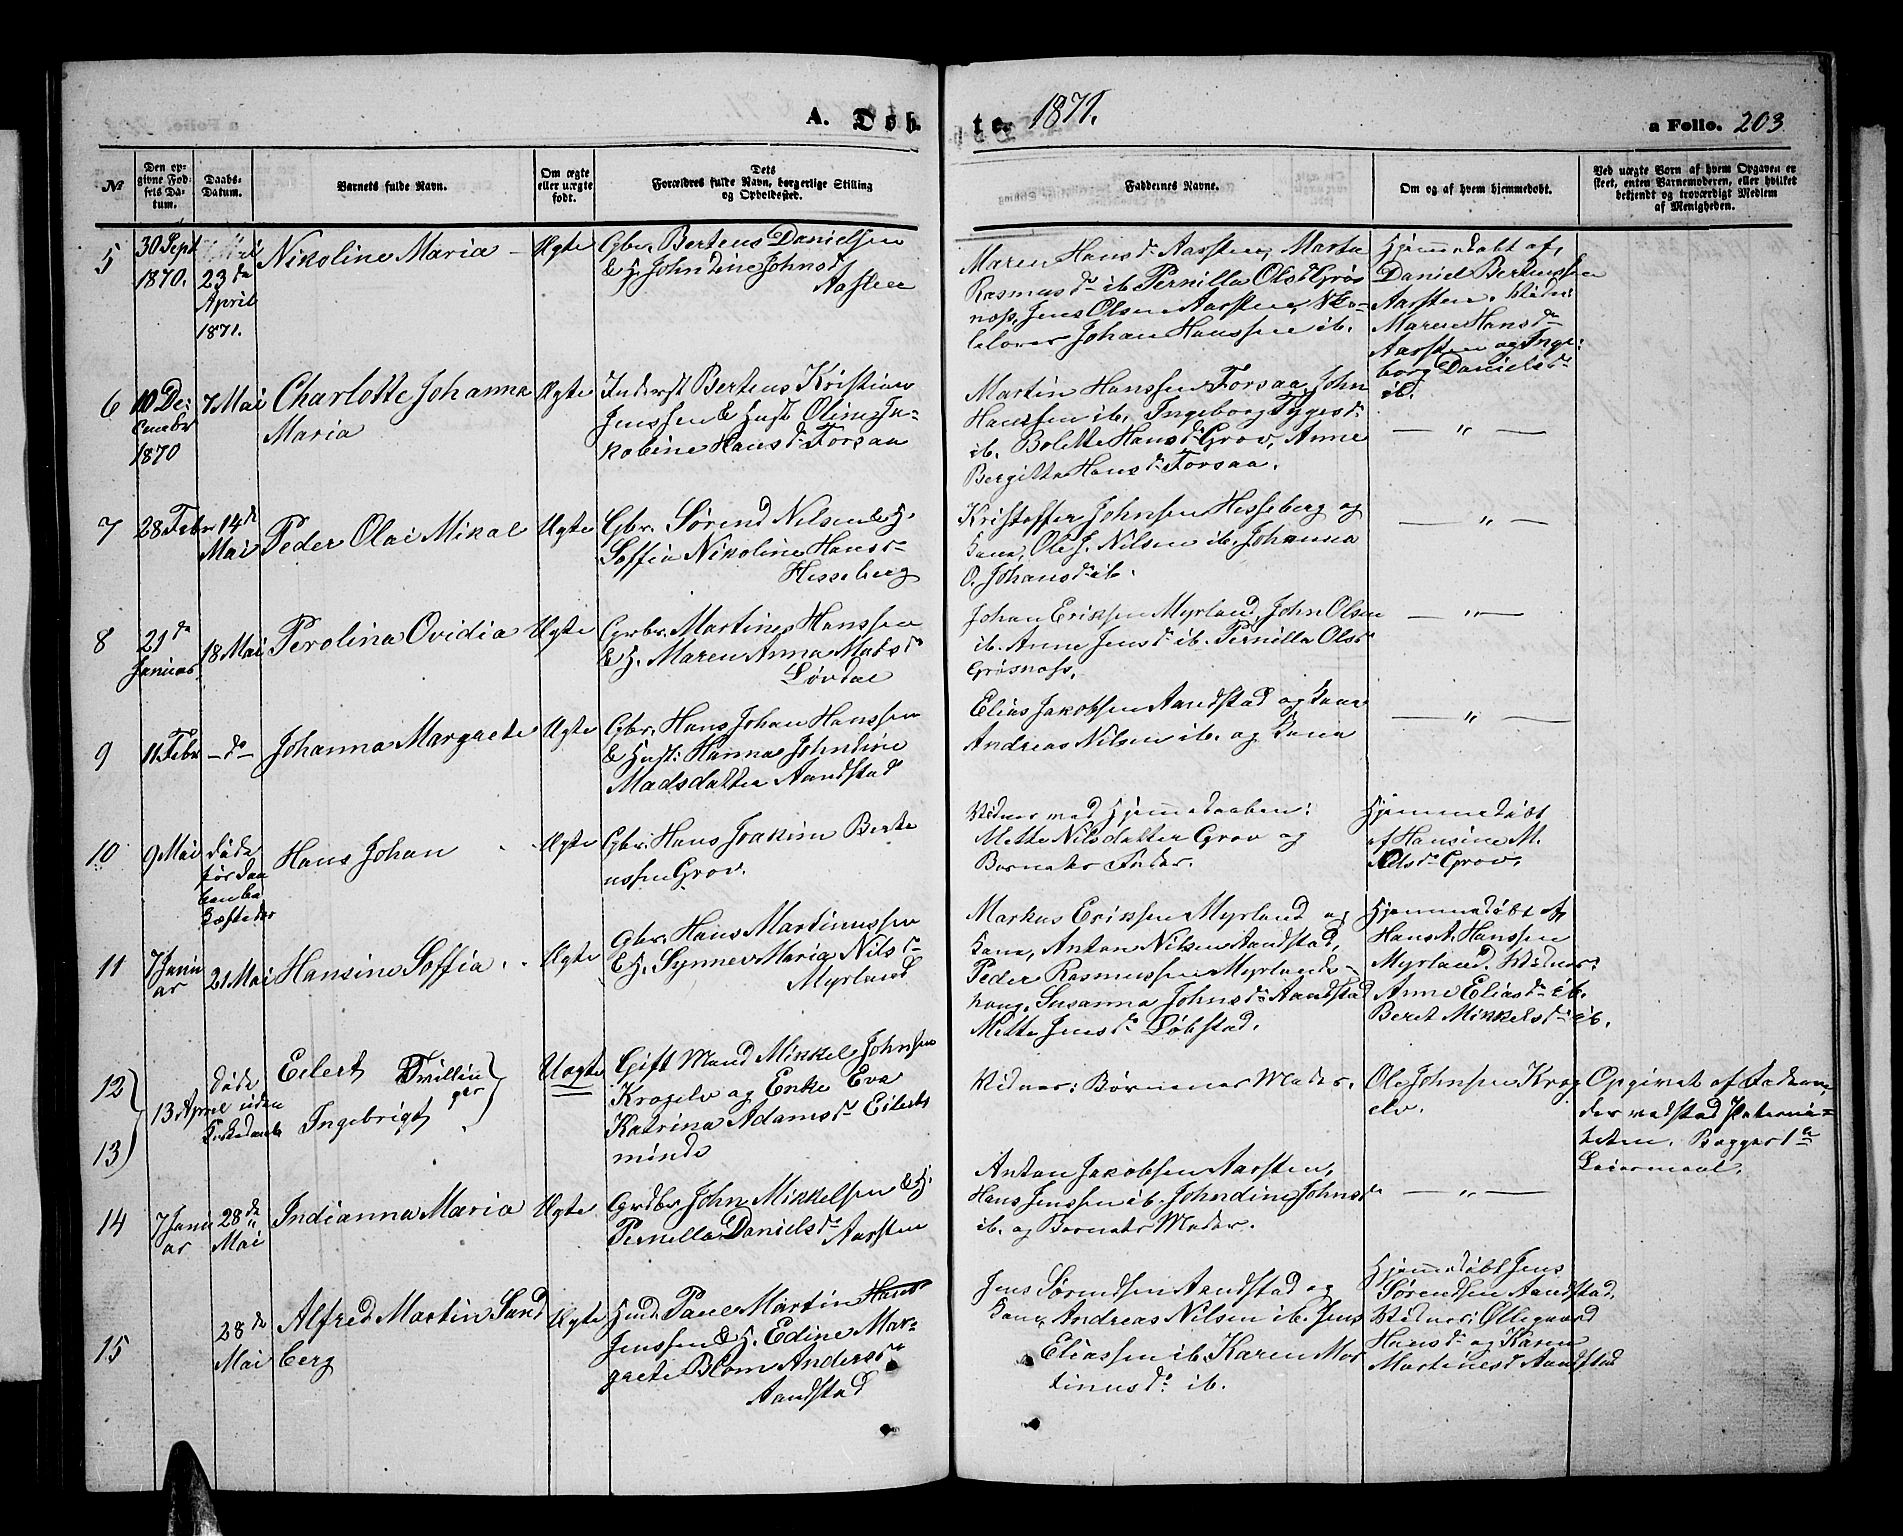 A. Døb.
te. 1871.
a Folio. 203
№
Den op-
givne Fød-
sels Da-
tum.
Daabs-
Datum.
Barnets fulde Navn.
Om ægte
eller uægte
født.
Dets
Forældres fulde Navn, borgerlige Stilling
og Opholdssted.
Faddernes Navne.
Om og af hvem hjemmedøbt.
Ved uægte Børn af hvem Opgaven er
skeet, enten Barnemoderen, eller hvilket
bekjendt og troværdigt Medlem
af Menigheden.
5
30 Sept
1870.
23de
April
1871.
Nikoline Maria
Ægte
Gbr. Berteus Danielsen
& H. Johndine Johnsd.
Aasten
Maren Hansdr Aarsten, Marta
Rasmusdr ib. Pernilla Olsdr Grøs
nøss, Jens Olsen Aarsten,
Johan Hanssen ib.
Hjemmedøbt af
Daniel Berteussen
Aarsten. Vidn:
Maren Hansdr
Aarsten og Inge:
borg Danielsdr
ib.
6
10 De:
cembr
1870
7 Mai
Charlotte Johanna
Maria
Ægte
Inderst Berteus Kristian
Jenssen & Hust. Oline Ja-
kobine Hansdr Forsaa
Martin Hanssen Forsaa, John
Hanssen ib, Ingeborg Tygesdr
ib. Bolette Hansdr Grov, Anne
Bergitte Hansdr Forsaa.
— „ —
7
28 Febr
14de
Mai
Peder Olai Mikal
Ægte
Gbr. Sørend Nilsen & H.
Soffia Nikoline Hansdr
Hesseberg
Kristoffer Johnsen Hesseberg og
Kone, Ole J. Nilsen ib. Johanna
O. Johansdr ib.
— „ —
8
21de
Januar
18 Mai
Perolina Ovidia
Ægte
Grbr. Martines Hanssen
& H. Maren Anna Madsdr
Løvdal
Johan Eriksen Myrland, John Olsen
ib. Anne Jensdr ib. Pernilla Olsdr
Grøsnøss.
— „ —
9
11 Febr
— do —
Johanna Margrete
Ægte
Gbr. Hans Johan Hanssen
& Hust: Hanna Johndine
Madsdatter Aandstad
Elias Jakobsen Aandstad og Kone
Andreas Nilsen ib. og Kone
— „ —
10
9 Mai
døde
før Daa
ben be
kræftedes
Hans Johan
Ægte
Gbr. Hans Joakim Berte
ussen Grov.
Vidner ved Hjemmedaaben:
Mette Nilsdatter Grov og
Barnets Fader.
Hjemmedøbt
af Hansine M.
Nilsdr Grov.
11
7 Janu
ar
21 Mai
Hansine Soffia
Ægte
Gbr. Hans Martinussen
& H. Synnev Maria Nilsdr
Myrland
Markus Eriksen Myrland og
Kone, Anton Nilsen Aandstad,
Peder Rasmussen Myrlands-
haug, Susanna Johnsdr Aandstad
Mette Jensdr Løbstad.
Hjemmedøbt af
Hans A. Hanssen
Myrland. Vidner:
Anne Eliasdr ib.
Beret Mikkelsdr ib.
12
13
13 April
døde
uden
Kirkedaab
Eilert
Ingebrigt
Tvillin
ger
Uægte
Gift Mand Mikkel Johnsen
Kragelv og Enke Eva
Katrina Adamsdr Eilerts
minde
Vidner: Børnenes Moder.
Ole Johnsen Krag
elv.
Opgivet af Faderen,
der vedstod Paterni-
teten. Begges 1ste
Leiermaal.
14
7 Janu
ar
28de
Mai
Indianna Maria
Ægte
Grdbr John Mikkelsen & H.
Pernella Danielsdr
Aarsten
Anton Jakobsen Aarsten,
Hans Jenssen ib. Johndine Johnsdr
ib. og Barnets Moder.
— „ —
15
28de
Mai
Alfred Martin Sand
berg
Ægte
Hmd. Paul Martin Hans
Jenssen & H. Edine Mar-
grete Blom Andersdr
Aandstad
Jens Sørendsen Aandstad og
Kone, Andreas Nilsen ib. Jens
Eliassen ib. Karen Mar
tinusdr ib.
Hjemmedøbt Jens
Sørendsen Aandstad,
Vidner: Ollegaard
Hansdr og Karen
Martinesdr Aandstad